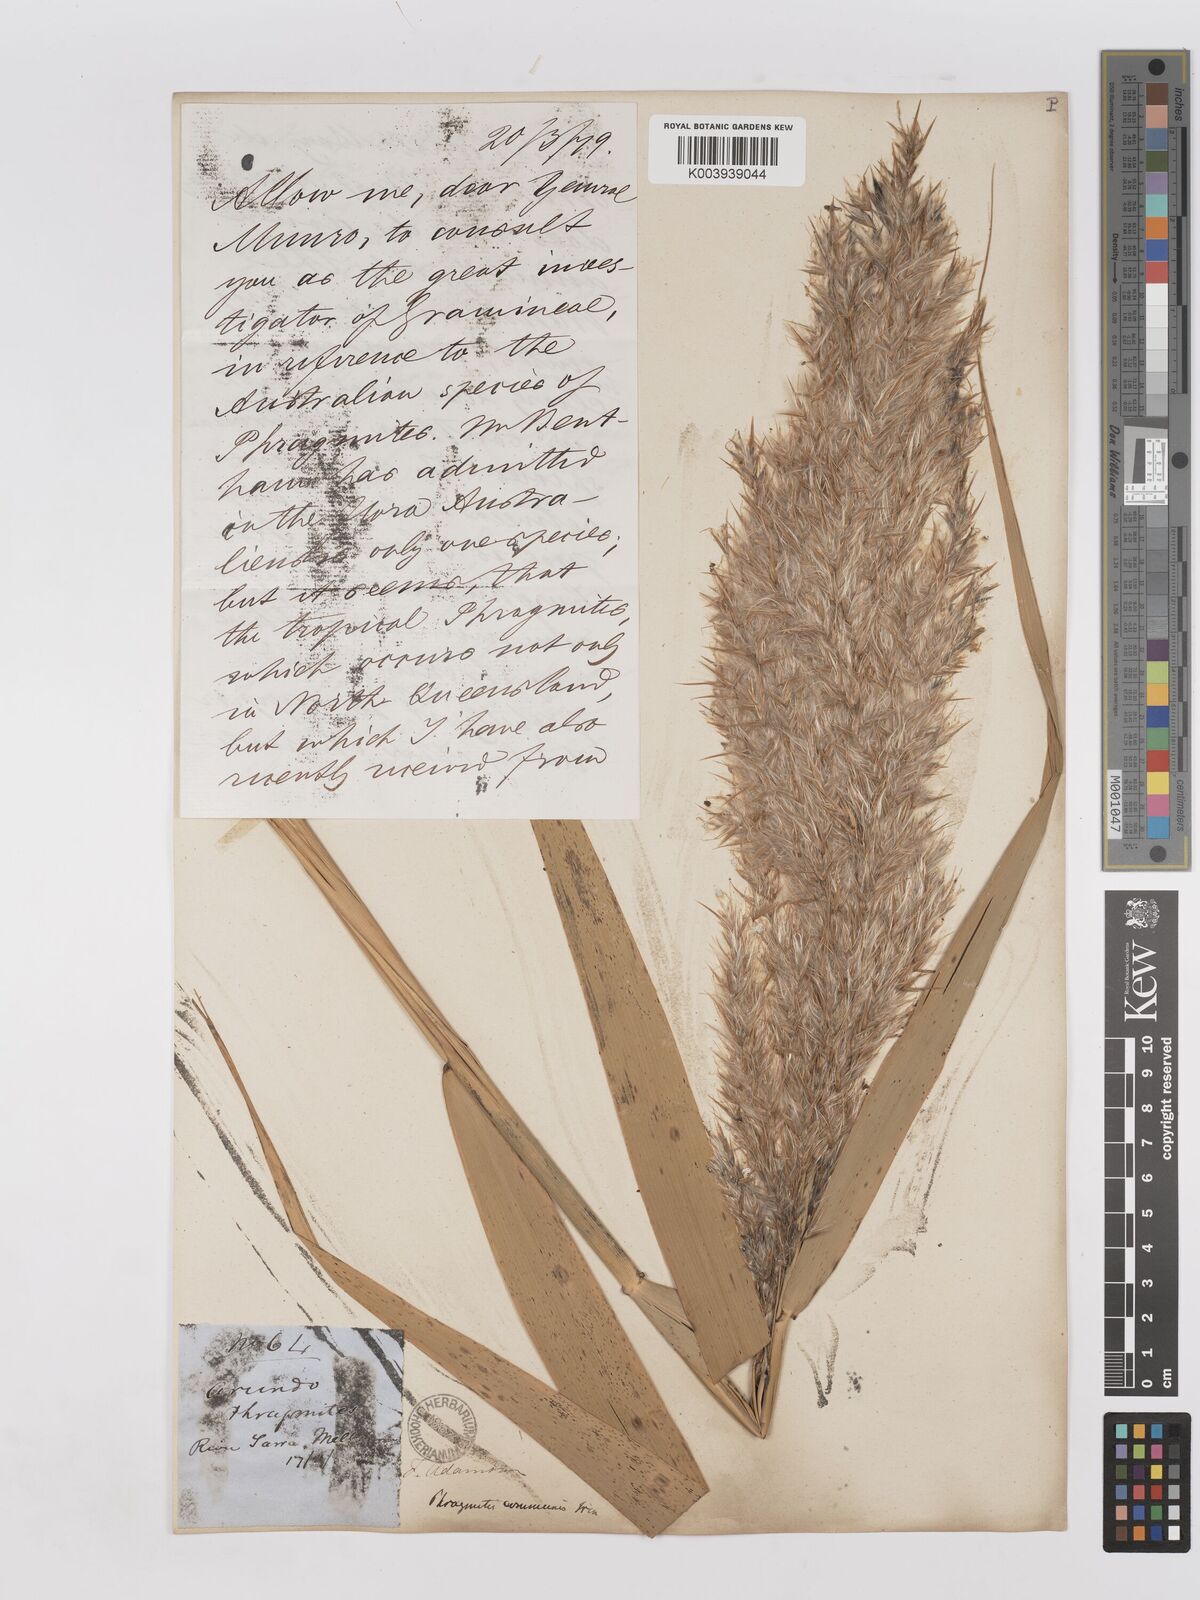 20/3/79.
Allow me, dear General
Munro, to consult
you as the great inves-
tigator of Gramineae,
in reference to the
Australian species of
Phragmites. Mr Bent-
ham has admitted
in the flora Austra-
liensis only one species;
but it seems, that
the tropical Phragmites,
which occurs not only
in North Queensland,
but which I have also
recently received from
ROYAL BOTANIC GARDENS KEW
K003939044
P
No 64
Arundo
Phragmites
River Yarra
17/
HERBARIUM
HOOKERIANUM
J. Adamson
Phragmites communis Trin
Don Williams
M001047
centimeters
Royal Botanic Gardens
Kew
copyright reserved
10
9
8
7
6
5
4
3
2
1
0
cm